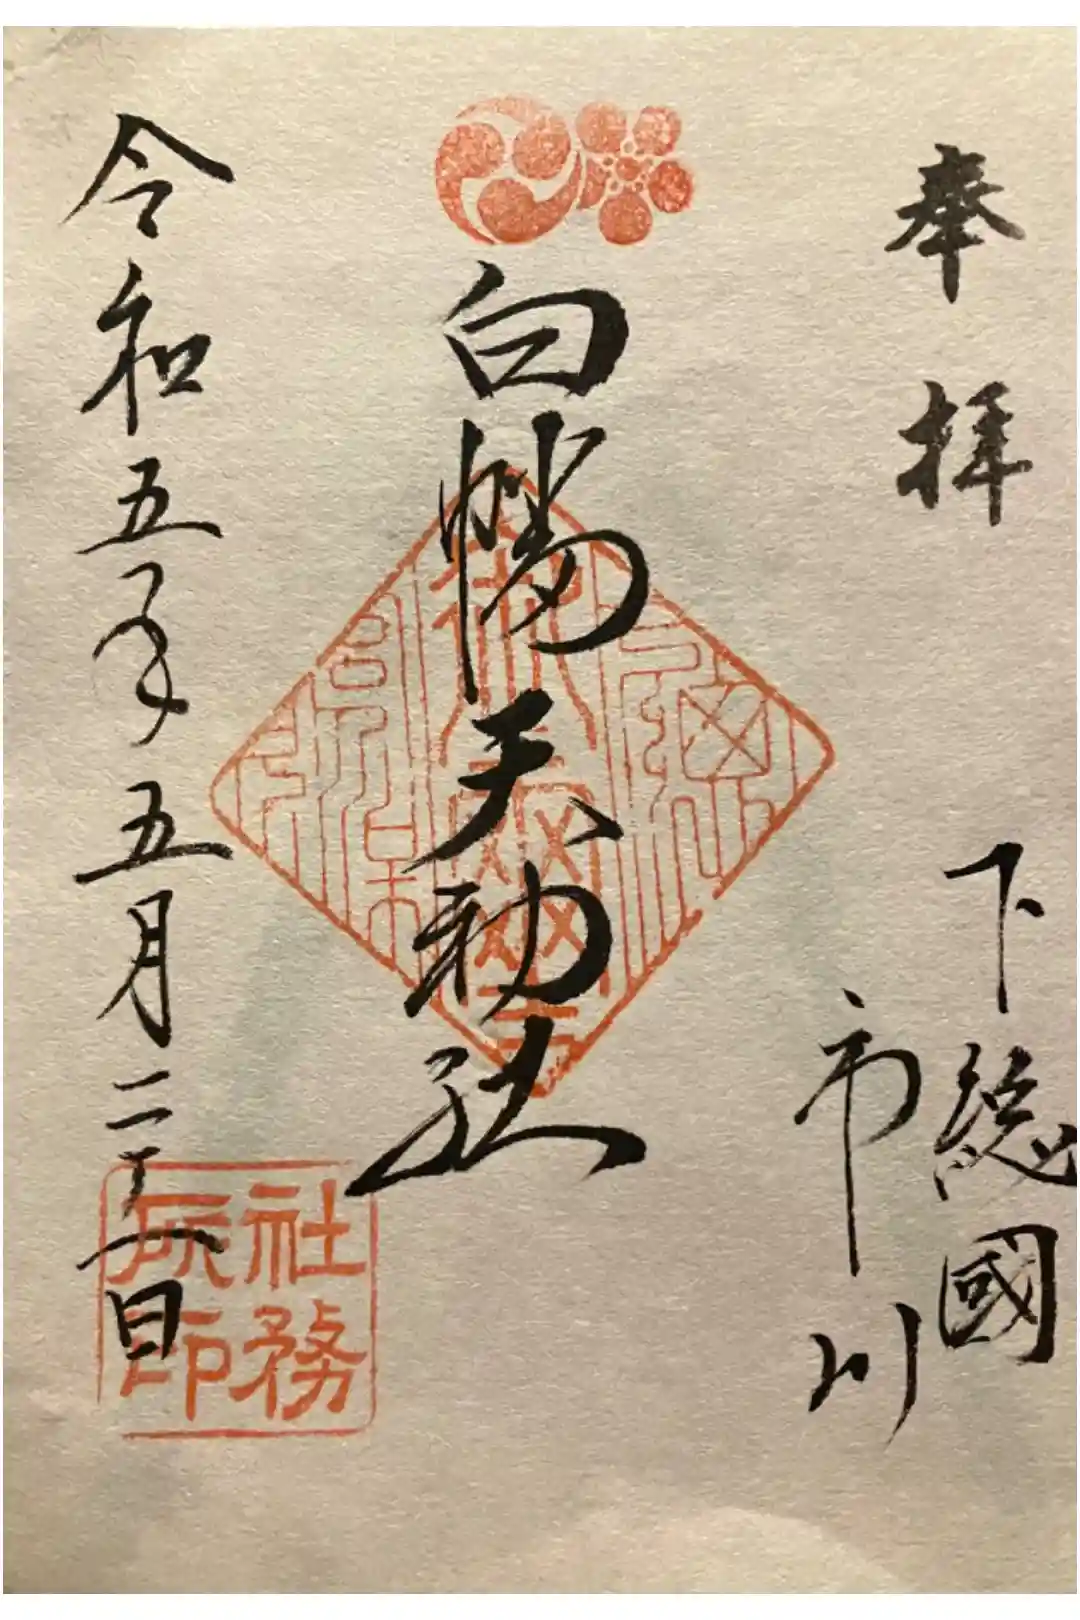 奉拝
下総國
市川
白幡天神社
令和五年五月二十一日
社務
所印